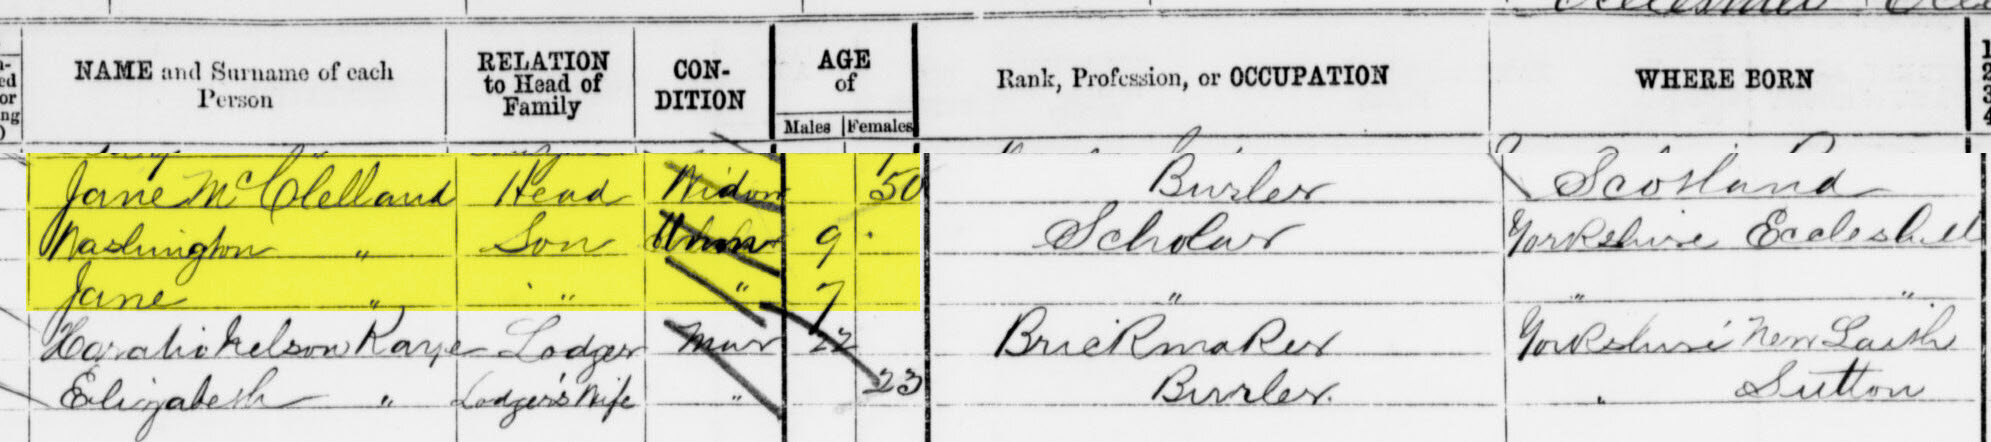 NAME and Surname of each Person
RELATION to Head of Family
CON- DITION
AGE of
Males Females
Rank, Profession, or OCCUPATION
WHERE BORN
Jane McClelland Head Widow 50 Burler Scotland
Washington " Son Unm 9 Scholar Yorkshire Eccleshill
Jane " " " 7 " " "
Horatio Nelson Kaye Lodger Mar 22 Brickmaker Yorkshire New Laith
Elizabeth " Lodger's Wife " 23 Burler " Sutton